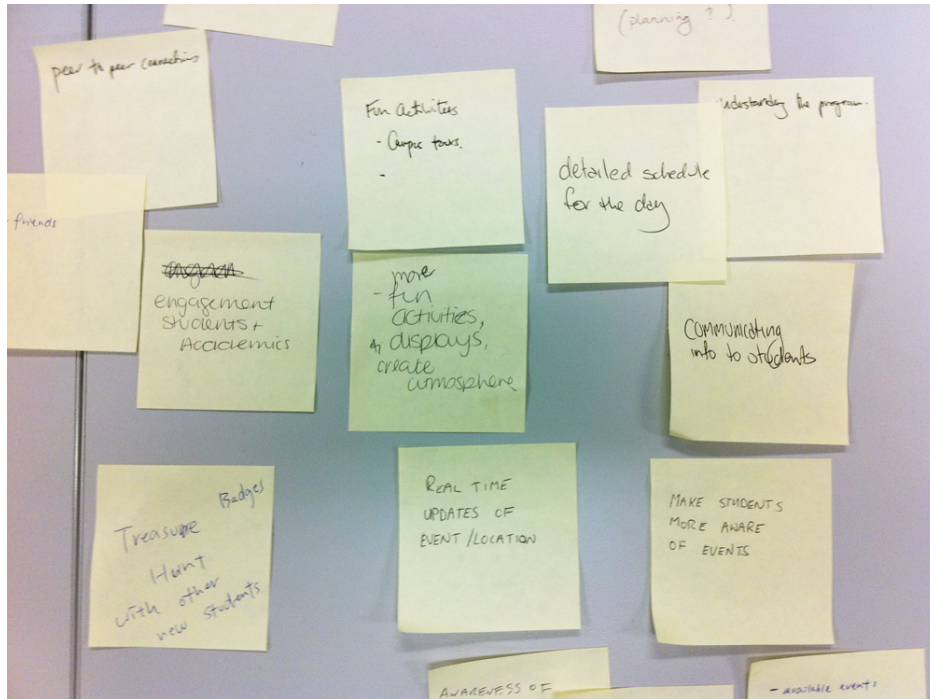 (planning ?)
peer to peer connections
Fun Activities
- Campus tours.
-
understanding the program.
detailed schedule
for the day
friends
engagement
students +
Academics
more
- fun
activities,
displays,
create
atmosphere
Communicating
info to students
Badges
Treasure
Hunt
with other
new students.
REAL TIME
UPDATES OF
EVENT/LOCATION
MAKE STUDENTS
MORE AWARE
OF EVENTS
AWARENESS OF
- available events